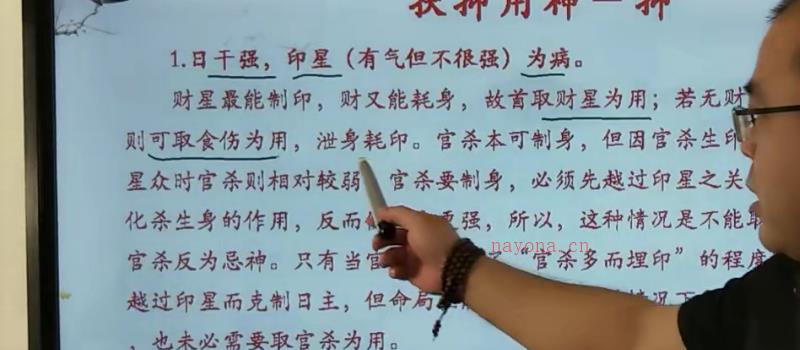 扶抑用神－抑
1.日干强，印星（有气但不很强）为病。
财星最能制印，财又能耗身，故首取财星为用；若无财
则可取食伤为用，泄身耗印。官杀本可制身，但因官杀生印
星众时官杀则相对较弱 官杀要制身，必须先越过印星之关
化杀生身的作用，反而 强，所以，这种情况是不能取
官杀反为忌神。只有当官 “官杀多而埋印”的程度
越过印星而克制日主，但命局 情况下
，也未必需要取官杀为用。
nayona.cn